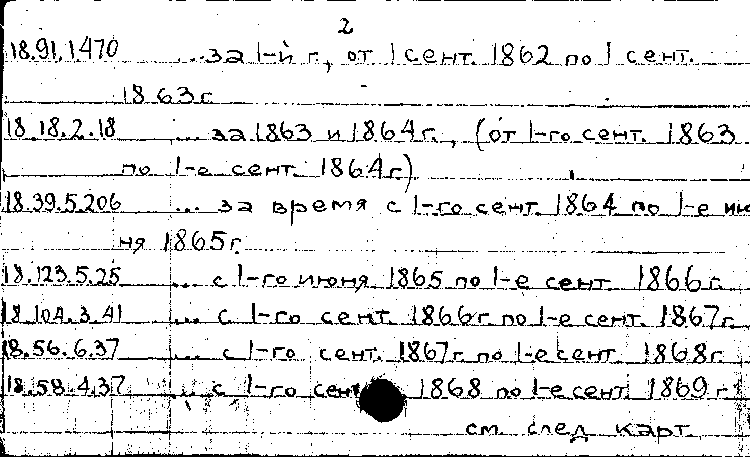 2
18.91.1.470 ...за 1-й г., от 1 сент. 1862 по 1 сент.
1863г.
18.18.2.18 ... за 1863 и 1864г., (от 1-го сент. 1863
по 1-е сент. 1864г)
18.39.5.206 ... за время с 1-го сент. 1864 по 1-е ию
ня 1865г.
18.123.5.25 ... с 1-го июня 1865 по 1-е сент. 1866г.
18.104.3.41 ... с 1-го сент. 1866г по 1-е сент. 1867г.
18.56.6.37 ... с 1-го сент. 1867г. по 1-е сент. 1868г.
18.58.4.37 ... с 1-го сент 1868 по 1-е сент. 1869г.
см. след карт.